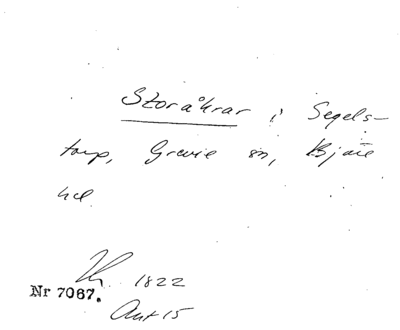 Storåkrar i Segels-
torp, Grevie sn, Bjäre
hd
1822
Nr 7067.
Akt 15